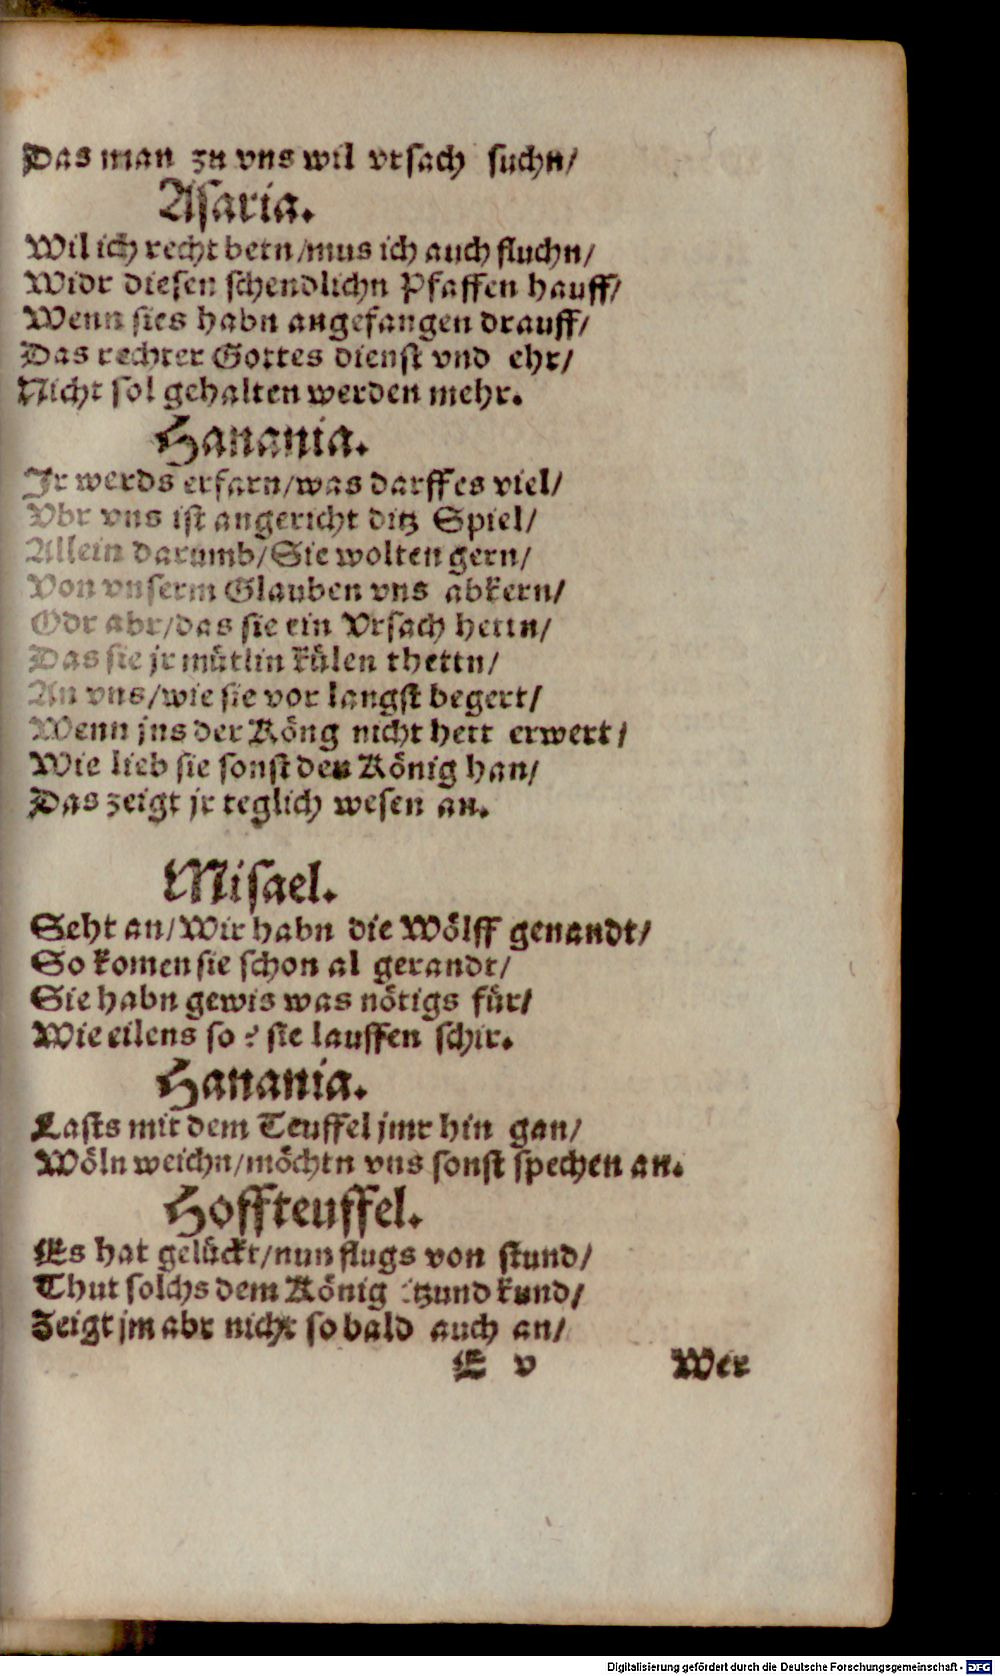 Das man zu vns wil vrsach suchn/
Asaria.
Wil ich recht betn/mus ich auch fluchn/
Widr diesen schendlichn Pfaffen hauff/
Wenn sies habn angefangen drauff/
Das rechter Gottes dienst vnd ehr/
Nicht sol gehalten werden mehr.
Hanania.
Jr werds erfarn/was darff es viel/
Vbr vns ist angericht ditz Spiel/
Allein darumb/Sie wolten gern/
Von vnserm Glauben vns abkern/
Odr abr/das sie ein Vrsach hettn/
Das sie jr mütlin külen thettn/
An vns/wie sie vor langst begert/
Wenn jns der Köng nicht hett erwert/
Wie lieb sie sonst den König han/
Das zeigt jr teglich wesen an.
Misael.
Seht an/Wir habn die Wölff genandt/
So komen sie schon al gerandt/
Sie habn gewis was nötigs für/
Wie eilens so? sie lauffen schir.
Hanania.
Lasts mit dem Teuffel jmr hin gan/
Wöln weichn/möchtn vns sonst spechen an.
Hoffteuffel.
Es hat gelückt/nun flugs von stund/
Thut solchs dem König itzund kund/
Zeigt jm abr nicht so bald auch an/
E v Wer
Digitalisierung gefördert durch die Deutsche Forschungsgemeinschaft - DFG